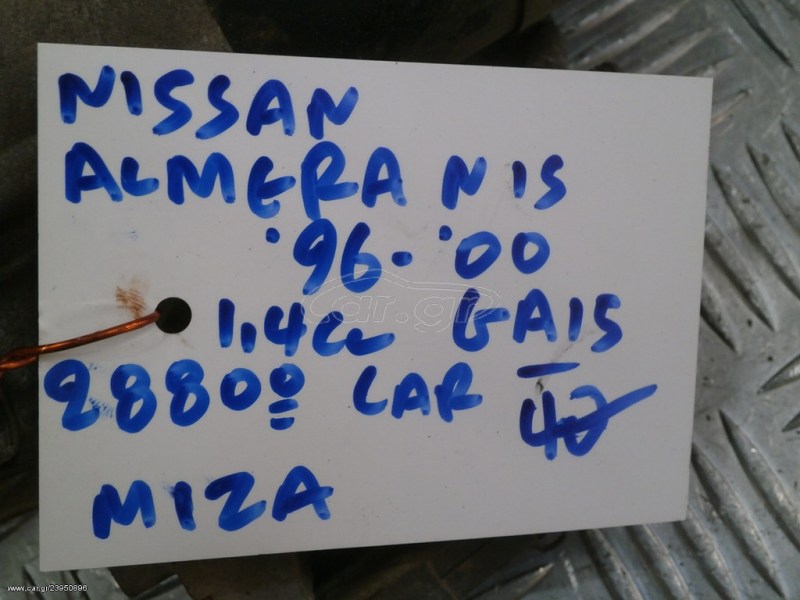 NISSAN
ALMERA N15
'96-'00
1,4cc GA15
28800 CAR
42
MIZA
car.gr
www.car.gr/23950896